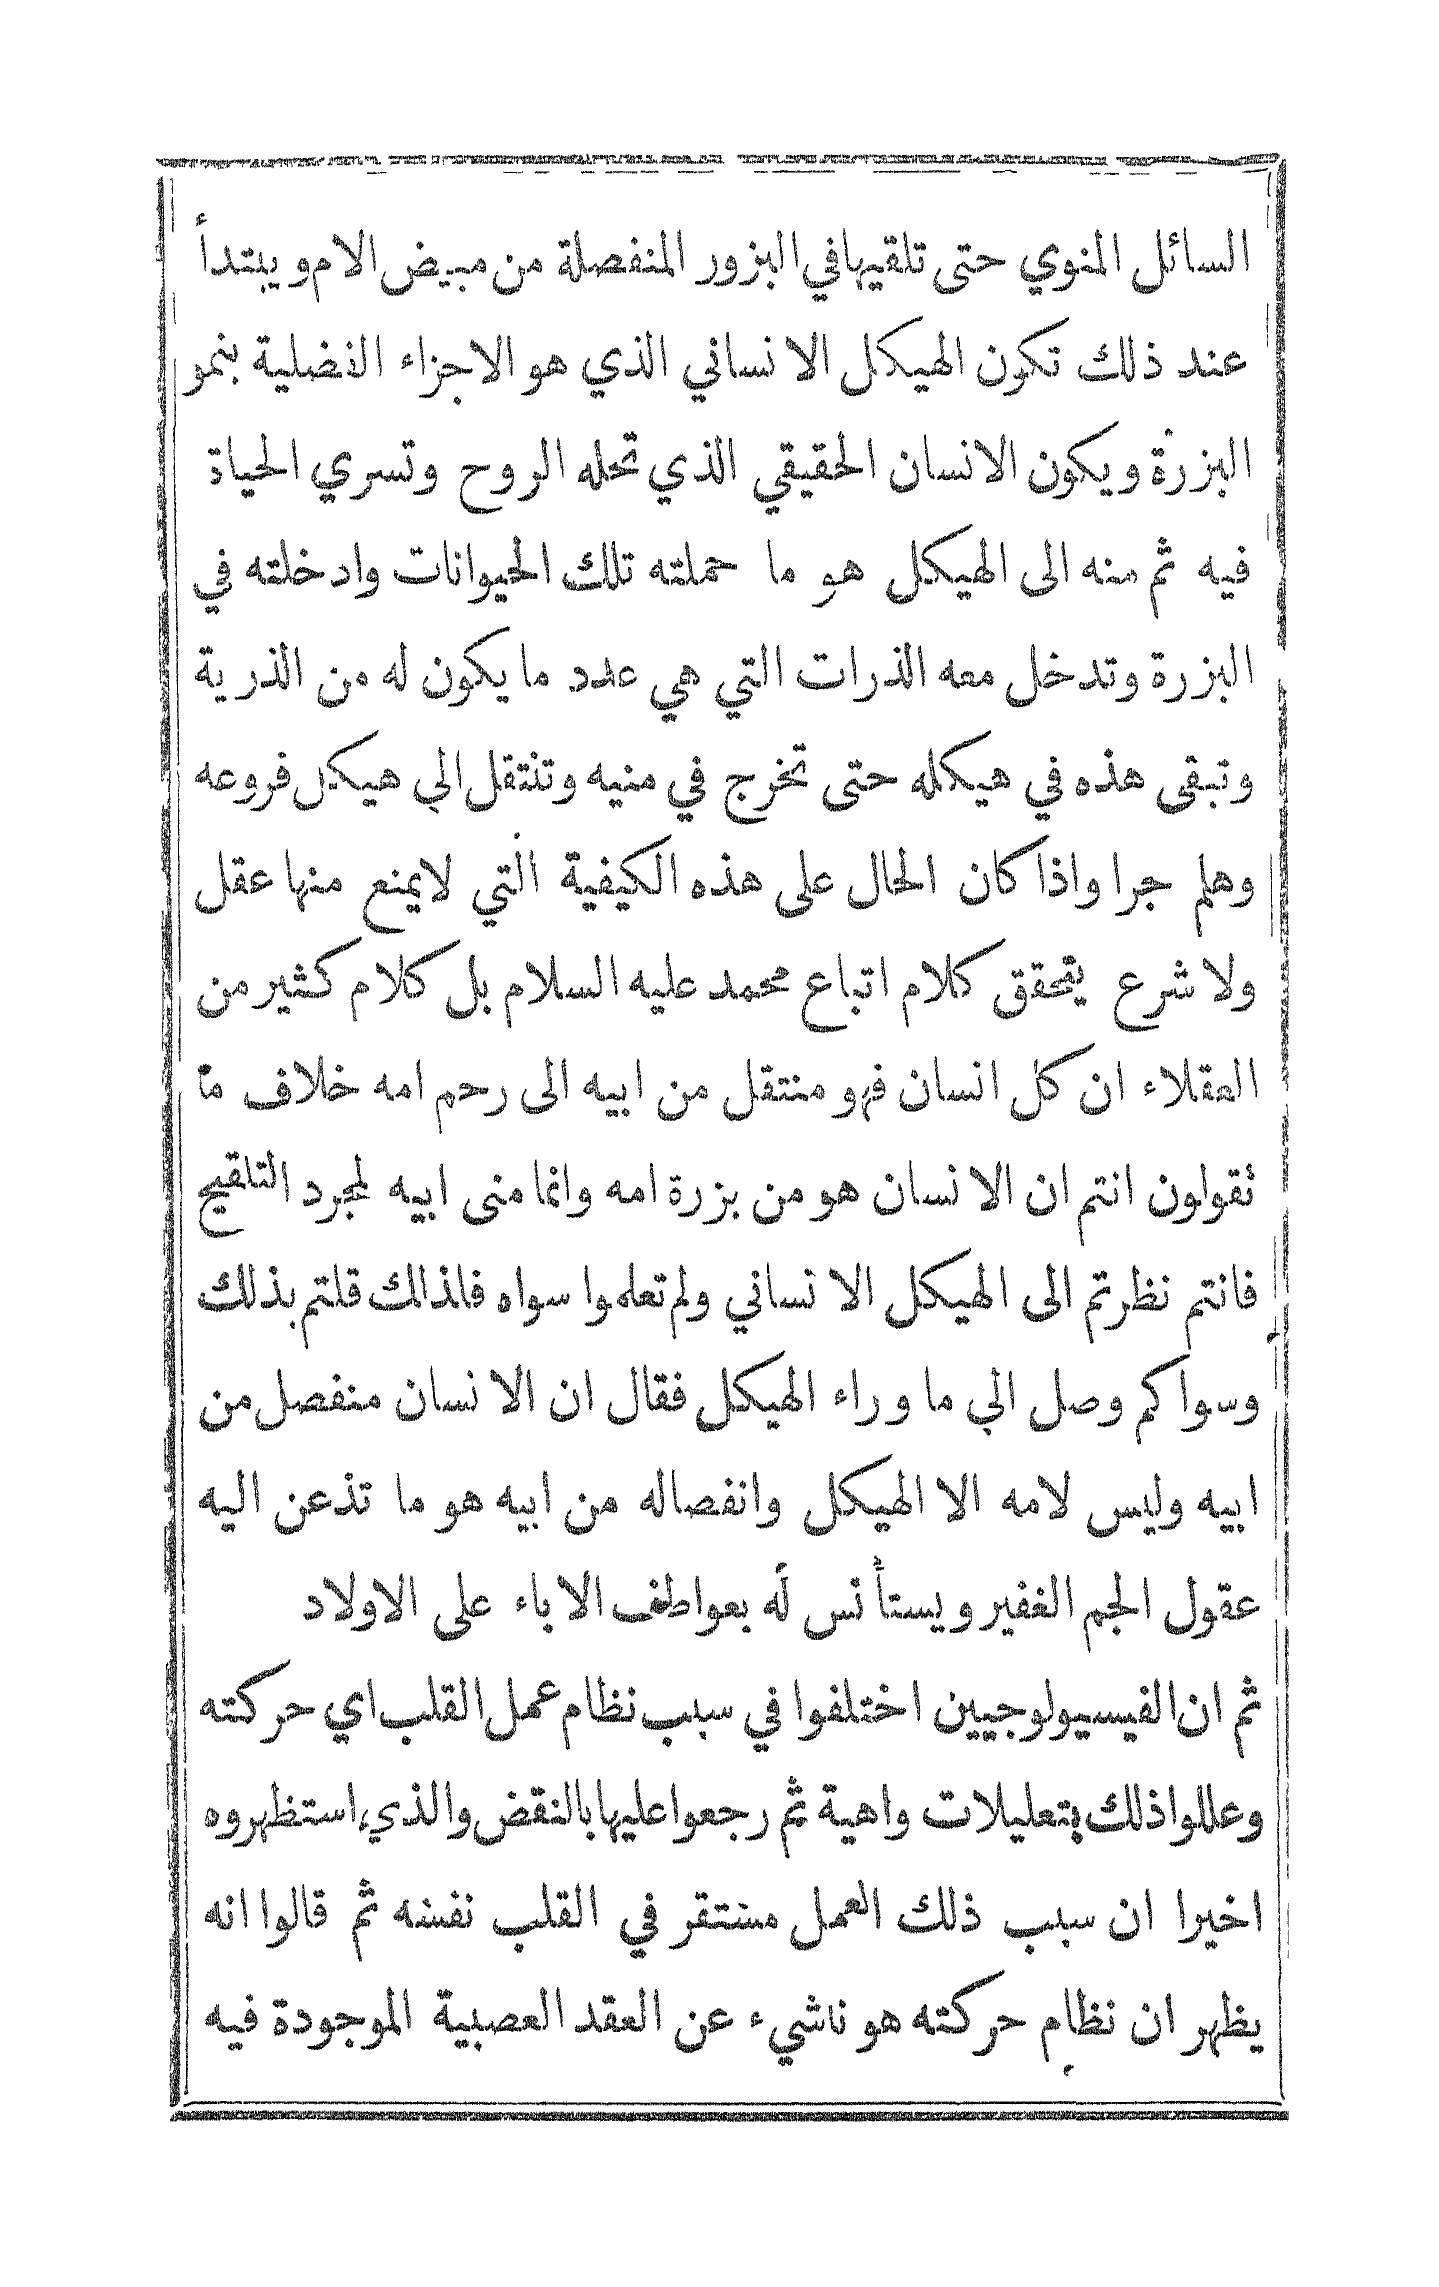 السائل المنوي حتى تلقيها في البزور المنفصلة من مبيض الام ويبتدأ
عند ذلك تكون الهيكل الانساني الذي هو الاجزاء الفضلية بنمو
البزرة ويكون الانسان الحقيقي الذي تحله الروح وتسري الحياة
فيه ثم منه الى الهيكل هو ما حملته تلك الحيوانات وادخلته في
البزرة وتدخل معه الذرات التي هي عدد ما يكون له من الذرية
وتبقى هذه في هيكله حتى تخرج في منيه وتنتقل الي هيكل فروعه
وهلم جرا واذا كان الحال على هذه الكيفية التي لا يمنع منها عقل
ولا شرع يتحقق كلام اتباع محمد عليه السلام بل كلام كثير من
العقلاء ان كل انسان فهو منتقل من ابيه الى رحم امه خلاف ما
تقولون انتم ان الانسان هو من بزرة امه وانما منى ابيه لمجرد التلقيح
فانتم نظرتم الى الهيكل الانساني ولم تعلموا سواه فلذالك قلتم بذلك
وسواكم وصل الي ما وراء الهيكل فقال ان الانسان منفصل من
ابيه وليس لامه الا الهيكل وانفصاله من ابيه هو ما تذعن اليه
عقول الجم الغفير ويستأنس له بعواطف الاباء على الاولاد
ثم ان الفيسيولوجيين اختلفوا في سبب نظام عمل القلب اي حركته
وعللوا ذلك بتعليلات واهية ثم رجعوا عليها بالنقض والذي استظهروه
اخيرا ان سبب ذلك العمل مستقر في القلب نفسه ثم قالوا انه
يظهر ان نظام حركته هو ناشيء عن العقد العصبية الموجودة فيه